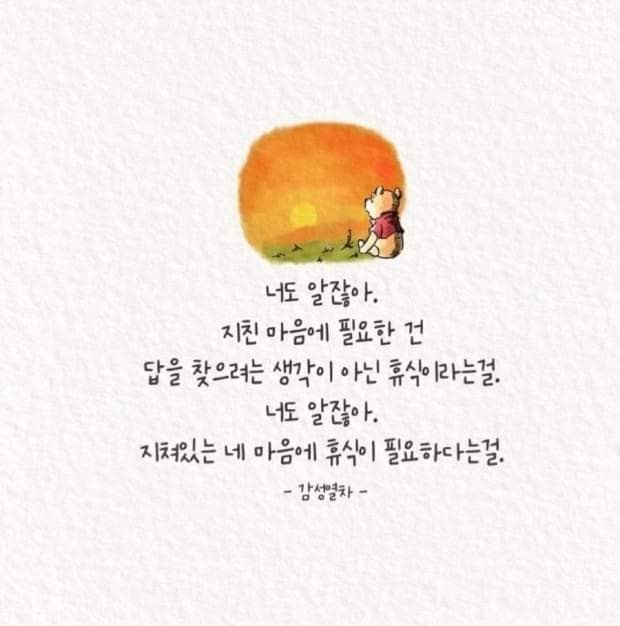 너도 알잖아.
지친 마음에 필요한 건
답을 찾으려는 생각이 아닌 휴식이라는걸.
너도 알잖아.
지쳐있는 네 마음에 휴식이 필요하다는걸.
- 감성열차 -